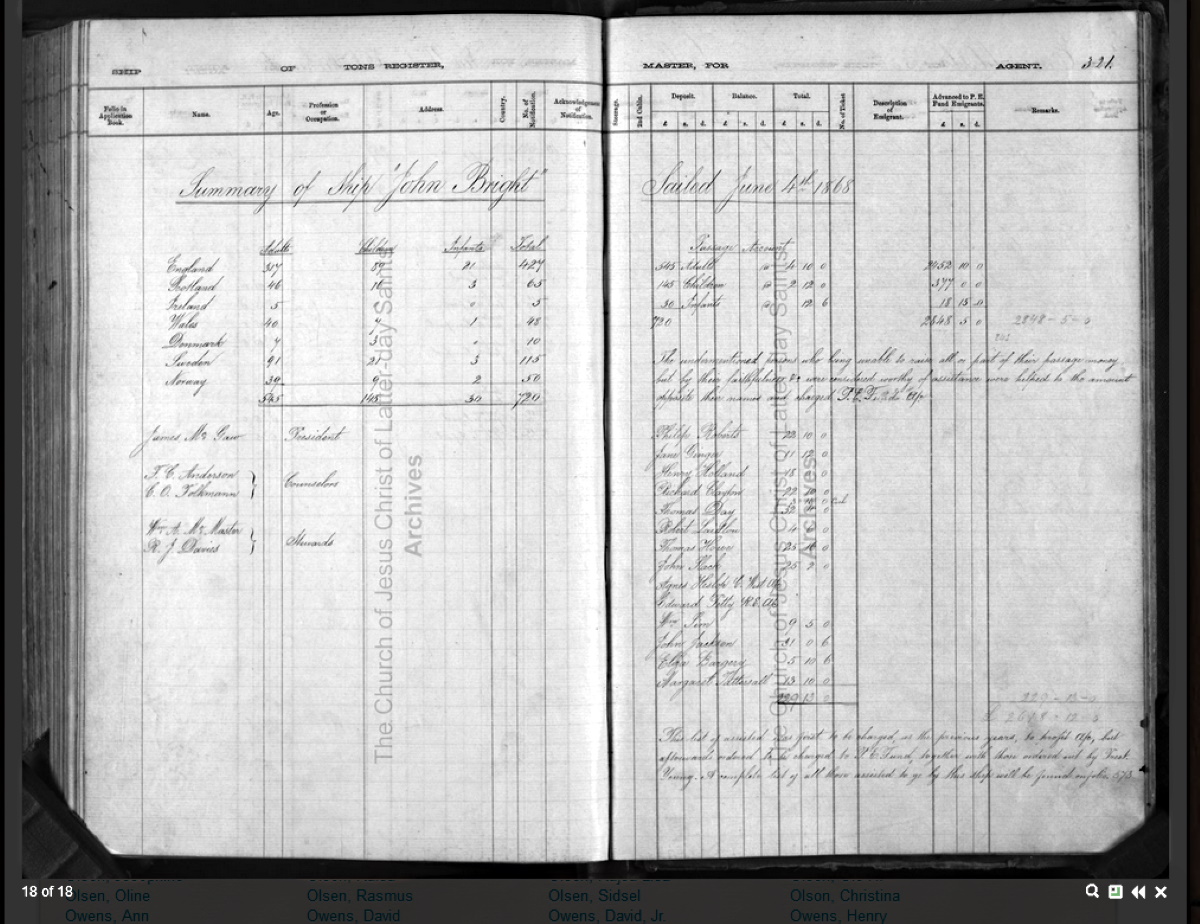 SHIP OF TONS REGISTER,
MASTER, FOR AGENT. 321.
Folio in Application Book. Name. Age. Profession or Occupation. Address. Country. No. of Notification. Acknowledgment of Notification.
Steerage. 2nd Cabin. Deposit. Balance. Total. No. of Ticket Description of Emigrant. Advanced to P. E. Fund Emigrants. Remarks.
£ s. d. £ s. d. £ s. d. £ s. d.
Summary of Ship "John Bright"
Sailed June 4th 1868
Adults Children Infants Total
England 317 89 21 427
Scotland 46 16 3 65
Ireland 5 0 5
Wales 40 7 1 48
Denmark 7 3 0 10
Sweden 91 21 3 115
Norway 39 9 2 50
545 145 30 720
James Mc Gaw President
T. C. Anderson
C. O. Folkmann
Counselors
Wm A. Mc Master
R. J. Davies
Stewards
Passage Account
545 Adults @ 4 10 0 2452 10 0
145 Children @ 2 12 0 377 0 0
30 Infants @ 12 6 18 15 0
720 2848 5 0 2848 - 5 - 0
The undermentioned persons who being unable to raise all or part of their passage money
but by their faithfulness &c were considered worthy of assistance were helped to the amount
opposite their names and charged P. E. F. a/c
Philip Roberts 22 10 0
Jane Ginger 11 12 0
Henry Holland 18 0
Richard Clayton 22 10 0
Thomas Day 32 0
Robert 4 0
Thomas 25 0
John 25 2 0
Agnes C. West a/c
Edward a/c
Wm Sim 9 5 0
John Jackson 31 0 6
Eliza 5 10 6
Margaret Tattersall 13 10 0
229 13 0 229 - 13 - 0
£ 2618 - 12 - 0
This list of assisted was first to be charged, as the previous years, to profit a/c, but
afterwards ordered to be charged to P. E. Fund, together with those ordered out by Prest.
Young. A complete list of all those assisted to go by this ship will be found on folio 373
The Church of Jesus Christ of Latter-day Saints
Archives
The Church of Jesus Christ of Latter-day Saints
Archives
18 of 18
Olsen, Oline Olsen, Rasmus Olsen, Sidsel Olsen, Christina
Owens, Ann Owens, David Owens, David, Jr. Owens, Henry